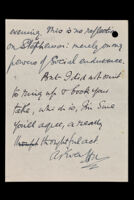 evening. This is no reflection
on Stephenson: merely on my
powers of social endurance.
But I did not want
to ring up & book you
take, which is, I'm sure
you'll agree, a really
thoughtful act